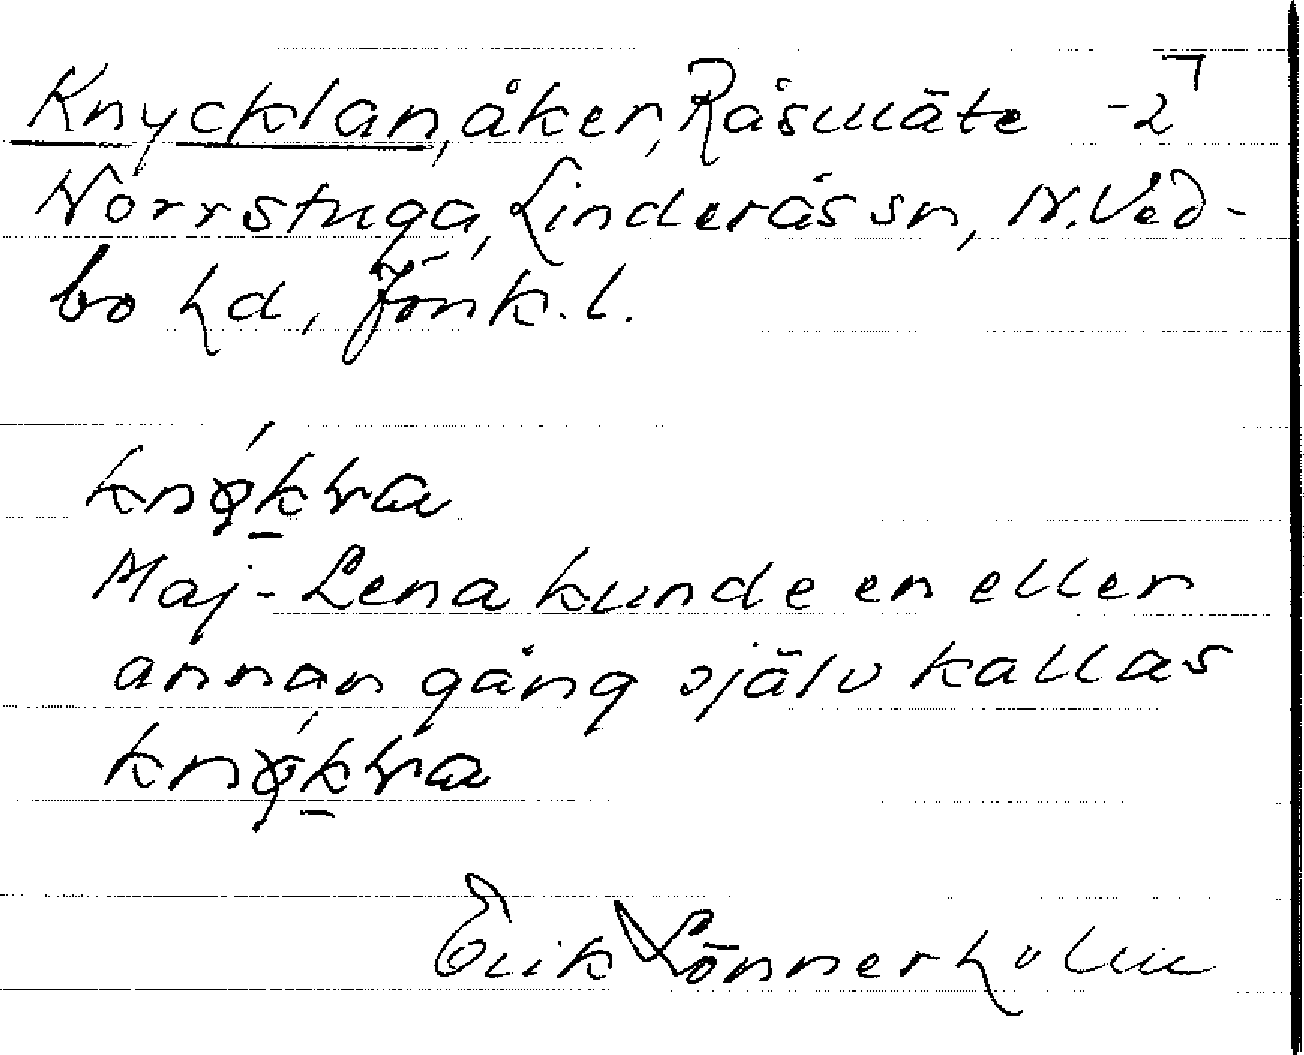 Knycklan, åker, Råsmäte -2⁷
Norrstuga, Linderås sn, N. Ved-
bo hd, Jönk. l.
Maj-Lena kunde en eller
annan gång själv kallas
Erik Lönnerholm